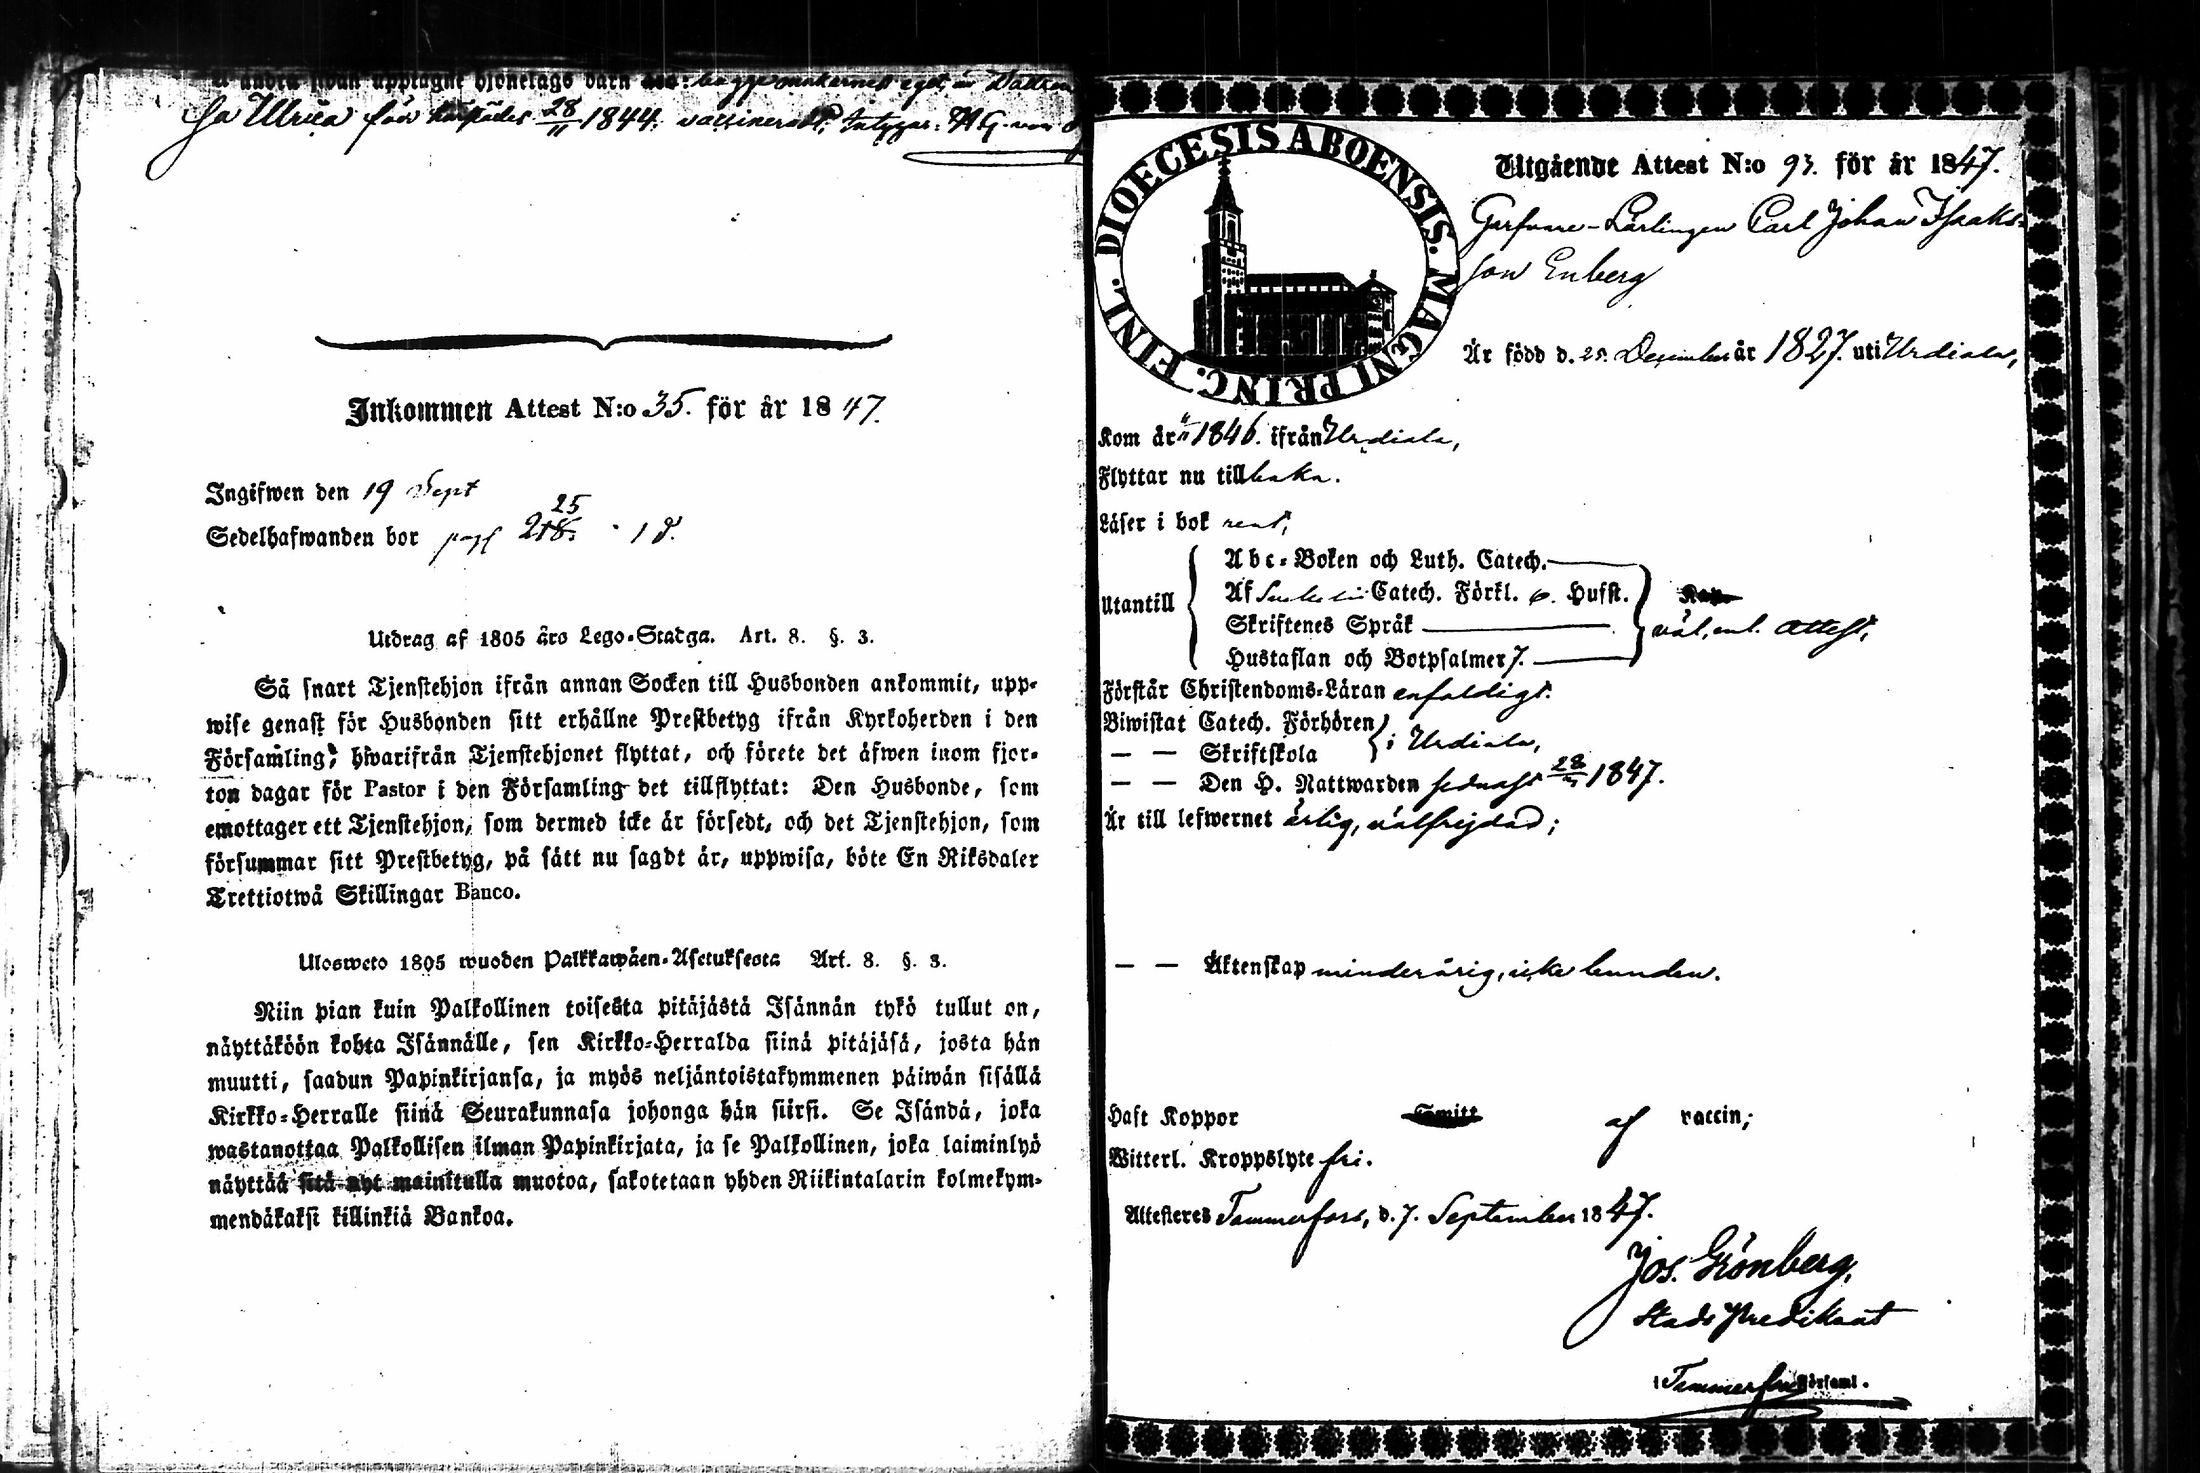 andra sidan upptagne hjonelags barn
Ulrica född 28/11 1844. vaccinerad; Intygar:
Inkommen Attest N:o 35. för år 1847.
Ingifwen den 19 Sept
Sedelhafwanden bor pag 218. 25
Utdrag af 1805 års Lego-Stadga. Art. 8. §. 3.
Så snart Tjenstehjon ifrån annan Socken till Husbonden ankommit, upp-
wise genast för Husbonden sitt erhållne Prestbetyg ifrån Kyrkoherden i den
Församling, hwarifrån Tjenstehjonet flyttat, och förete det äfwen inom fjor-
ton dagar för Pastor i den Församling det tillflyttat: Den Husbonde, som
emottager ett Tjenstehjon, som dermed icke är försedt, och det Tjenstehjon, som
försummar sitt Prestbetyg, på sätt nu sagdt är, uppwisa, böte En Riksdaler
Trettiotwå Skillingar Banco.
Ulosweto 1805 wuoden Palkkawäen-Asetuksesta Art. 8. §. 3.
Niin pian kuin Palkollinen toisesta pitäjästä Isännän tykö tullut on,
näyttäköön kohta Isännälle, sen Kirkko-Herralda siinä pitäjäsä, josta hän
muutti, saadun Papinkirjansa, ja myös neljäntoistakymmenen päiwän sisällä
Kirkko-Herralle siinä Seurakunnasa johonga hän siirsi. Se Isändä, joka
wastanottaa Palkollisen ilman Papinkirjata, ja se Palkollinen, joka laiminlyö
näyttää sitä nyt mainitulla muotoa, sakotetaan yhden Riikintalarin kolmekym-
mendäkaksi killinkiä Bankoa.
DIOECESIS ABOENSIS. MAGNI PRINC. FINL.
Utgående Attest N:o 93. för år 1847.
Garfvare-Lärlingen Carl Johan Isaaks-
son Enberg
Är född d. 25. December år 1827. uti Urdiala,
Kom år 1846. ifrån Urdiala,
Flyttar nu tillbaka.
Läser i bok rent,
Utantill
Abc-Boken och Luth. Catech.
Af Svebelii Catech. Förkl. 6. Hufst.
Skriftenes Språk
väl, enl. Attest,
Hustaflan och Botpsalmer 7.
Förstår Christendoms-Läran enfaldigt.
Biwistat Catech. Förhören
— — Skriftskola
i Urdiala,
— — Den H. Nattwarden sednast 1847.
Är till lefwernet ärlig, välfrejdad;
— — Äktenskap minderårig, icke bunden.
Haft Koppor af vaccin;
Witterl. Kroppslyte fri.
Attesteres Tammerfors, d. 7. September 1847.
Jos. Grönberg,
Stads Predikant
i Tammerfors Församl.